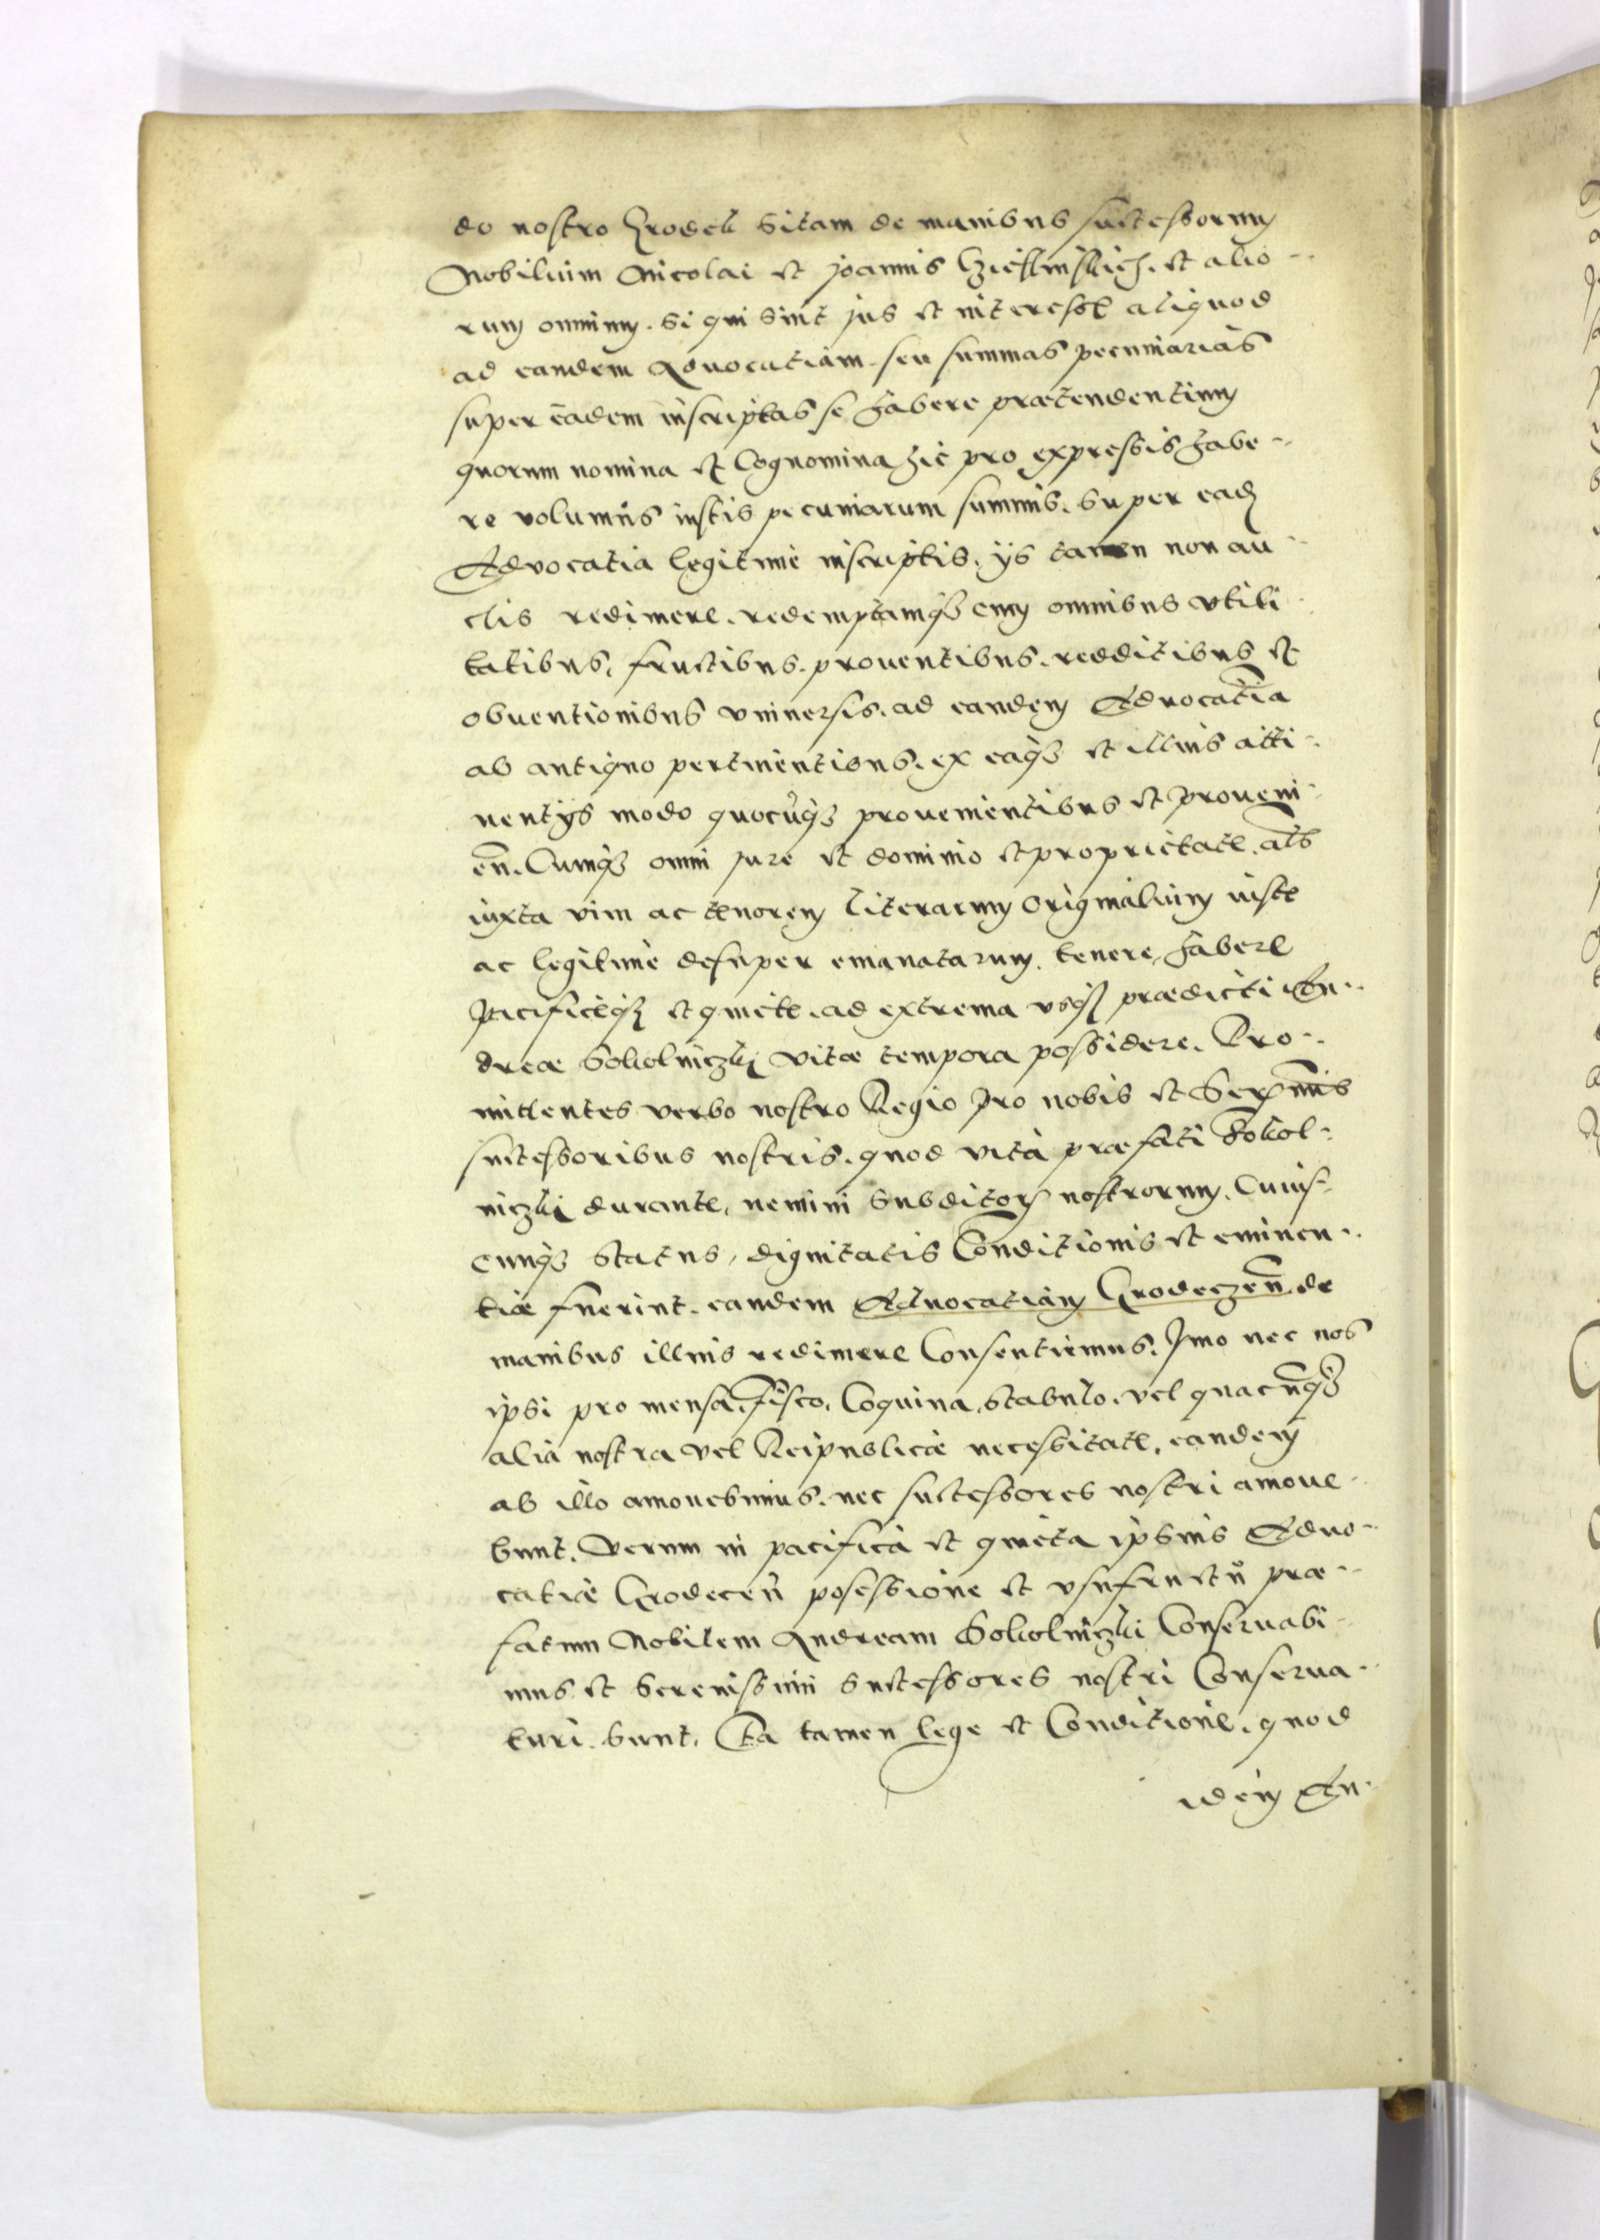 do nostro Grodek sitam de manibus successorum
Nobilium Nicolai et Joannis et alio-
rum omnium. si qui sint jus et interesse aliquod
ad eandem Advocatiam seu summas pecuniarias
super eadem inscriptas se habere prætendentium
quorum nomina et Cognomina hic pro expressis habe-
re volumus iustis pecuniarum summis. super eadē
Advocatia legitime inscriptis. ijs tamen non au-
ctis redimere. redemptamq₃ cum omnibus vtili-
tatibus, fructibus. prouentibus. redditibus et
obuentionibus vniuersis. ad eandem Aduocatiā
ab antiquo pertinentibus. ex eaq₃ et illius atti-
nentijs modo quocūq₃ prouenientibus et proueni-
eñ. Cumq₃ omni jure et dominio et proprietate. als̄
iuxta vim ac tenorem literarum Originalium iuste
ac legitime desuper emanatarum. tenere, habere
Pacificeq₃ et quiete. ad extrema vsq₃ prædicti An-
dreæ Sokolniczki vitæ tempora possidere. Pro-
mittentes verbo nostro Regio pro nobis et Serꝫmis
successoribus nostris. quod vita præfati Sokol-
niczki durante, nemini Subditorꝫ nostrorum. Cuius-
cunq₃ status, dignitatis Conditionis et eminen-
tiæ fuerint. eandem Aduocatiam Grodeczeñ. de
manibus illius redimere Consentiemus. Imo nec nos
ipsi pro mensa, fisco, Coquina, stabulo. vel quacūq₃
alia nostra vel Reipublicæ necessitate, eandem
ab illo amouebimus. nec successores nostri amoue-
bunt. Verum in pacifica et quieta ipsius Aduo-
catiæ Grodeceñ posessione et vsufructu præ-
fatum Nobilem Andream Sokolniczki Conseruabi-
mus et serenissimi successores nostri Conserua-
turi. sunt. Ita tamen lege et Conditione. quod
idem An-